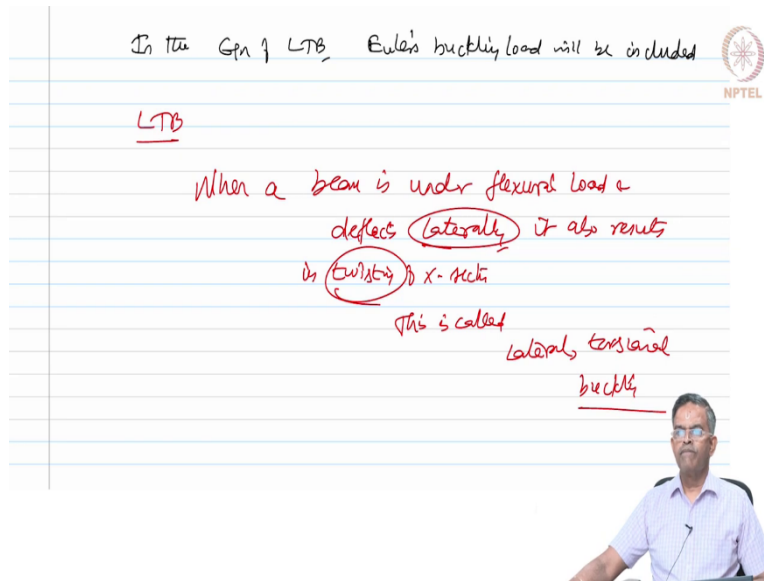 In the Eqn of LTB Euler's buckling load will be included
NPTEL
LTB
When a beam is under flexural load &
deflects laterally it also results
in twisting of x-section
This is called
Lateral, torsional
buckling